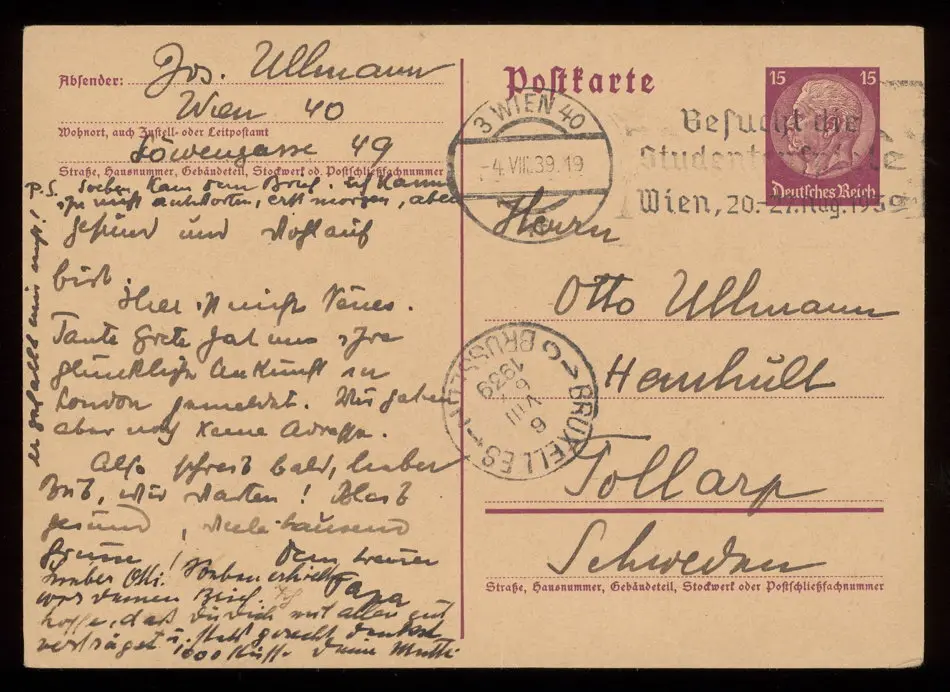 Absender: Jos. Ullmann
Wien 40
Wohnort, auch Zustell- oder Leitpostamt
Löwengasse 49
Straße, Hausnummer, Gebäudeteil, Stockwerk od. Postschließfachnummer
P.S. Soeben kam dein Brief. Ich kann
nicht antworten, erst morgen, aber
gesund und wohlauf
bist.
Hier ist nichts Neues.
Tante Grete hat uns ihre
glückliche Ankunft in
London gemeldet. Wir haben
aber noch keine Adresse.
Also schreib bald, lieber
Bub, wir warten! Bleib
gesund, viele tausend
Grüsse! Dein treuer
Papa
Lieber Otti! Soeben
wir deinen Brief. Ich
hoffe, daß du dich mit allen gut
verträgst u.
1000 Küsse Deine Mutti
Postkarte
15 15
Deutsches Reich
3 WIEN 40
-4.VIII.39.19
Besucht die
Wien, 20.-27. Aug. 1939
Herrn
Otto Ullmann
Hemhült
Tollarp
Schweden
Straße, Hausnummer, Gebäudeteil, Stockwerk oder Postschließfachnummer
BRUXELLES
BRUSSEL
6
VIII
1939